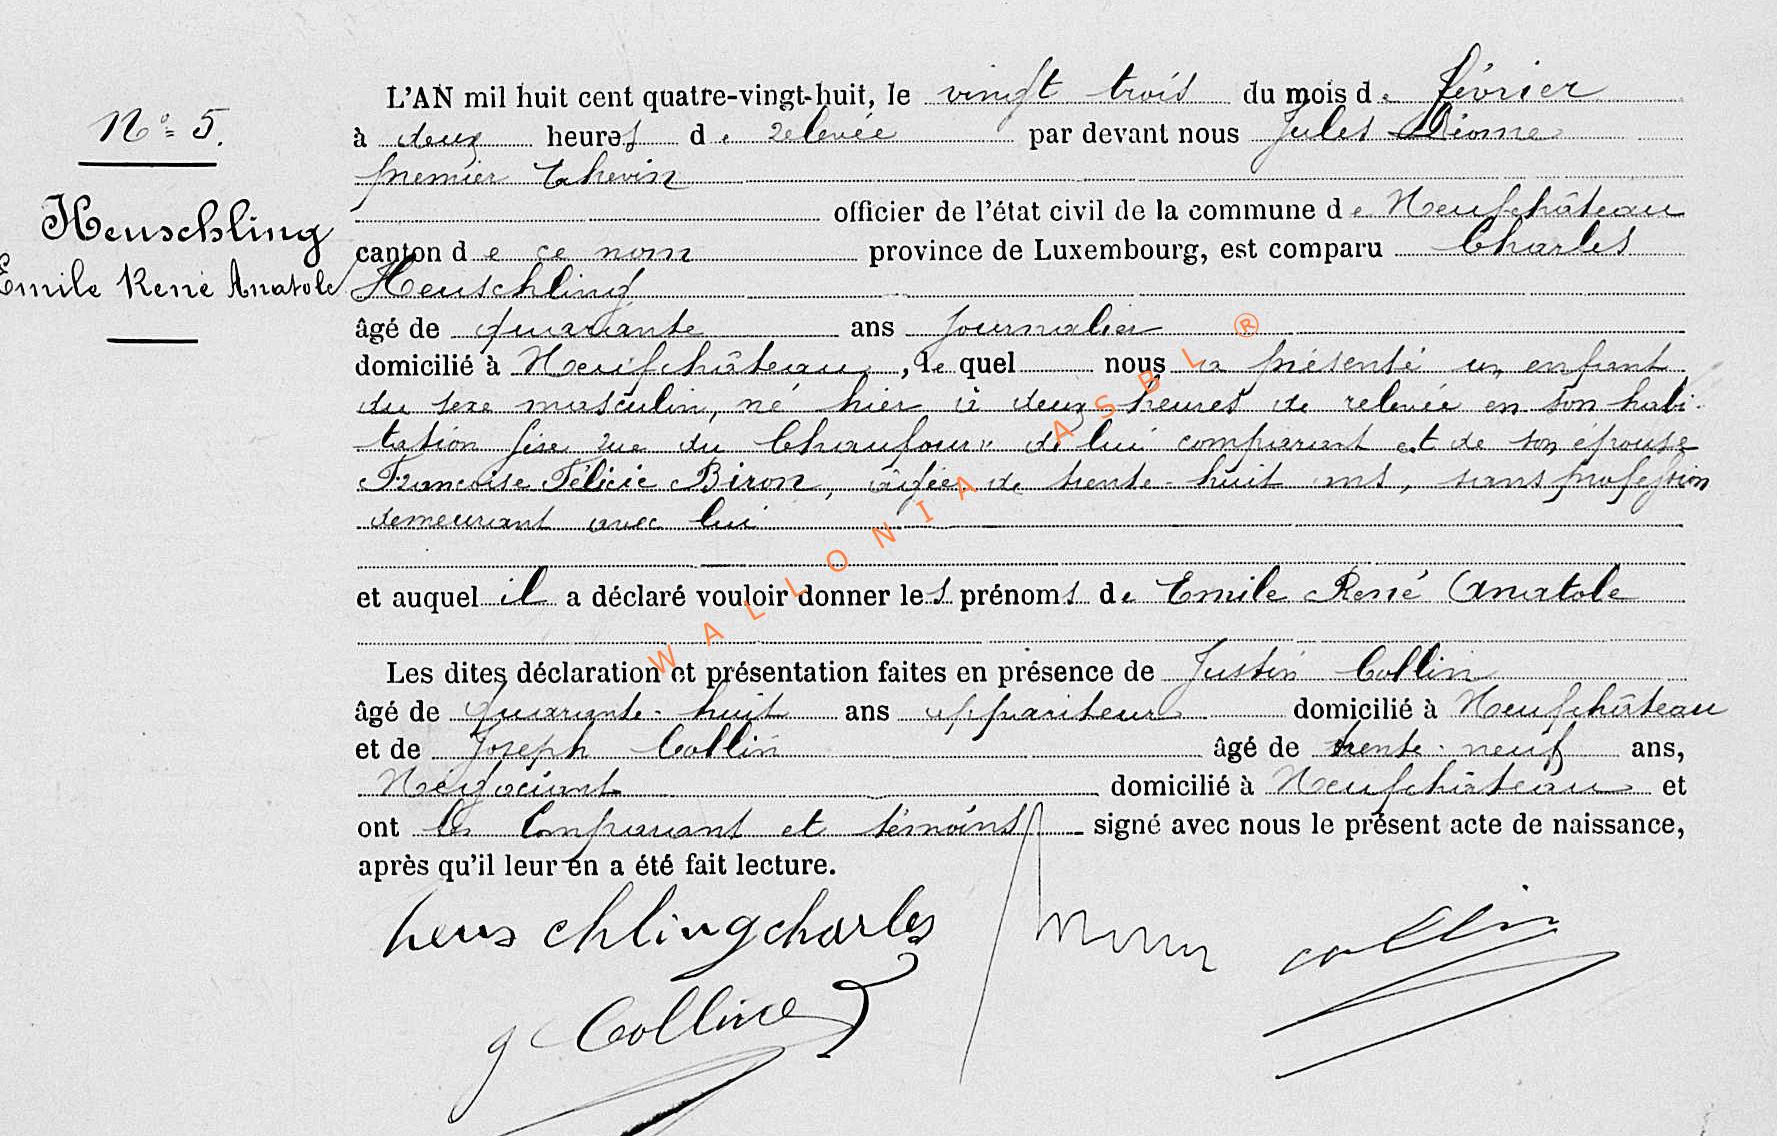 N° 5.
Heuschling
Emile René Anatole
L'AN mil huit cent quatre-vingt-huit, le vingt trois du mois de février
à deux heures de relevée par devant nous Jules
premier Echevin
officier de l'état civil de la commune de Neufchâteau
canton de ce nom province de Luxembourg, est comparu Charles
Heuschling
âgé de quarante ans journalier
domicilié à Neufchâteau, le quel nous a présenté un enfant
du sexe masculin, né hier à deux heures de relevée en son habi-
tation sise rue du Chaufour" de lui comparant et de son épouse
Francoise Félicie Biron, âgée de trente-huit ans, sans profession
demeurant avec lui
et auquel il a déclaré vouloir donner les prénoms de Emile René Anatole
Les dites déclaration et présentation faites en présence de Justin Collin
âgé de quarante-huit ans appariteur domicilié à Neufchâteau
et de Joseph Collin âgé de trente-neuf ans,
Négociant domicilié à Neufchâteau et
ont les Comparant et témoins signé avec nous le présent acte de naissance,
après qu'il leur en a été fait lecture.
heuschling charles
collin
J Collin
WALLONIA ASBL ®